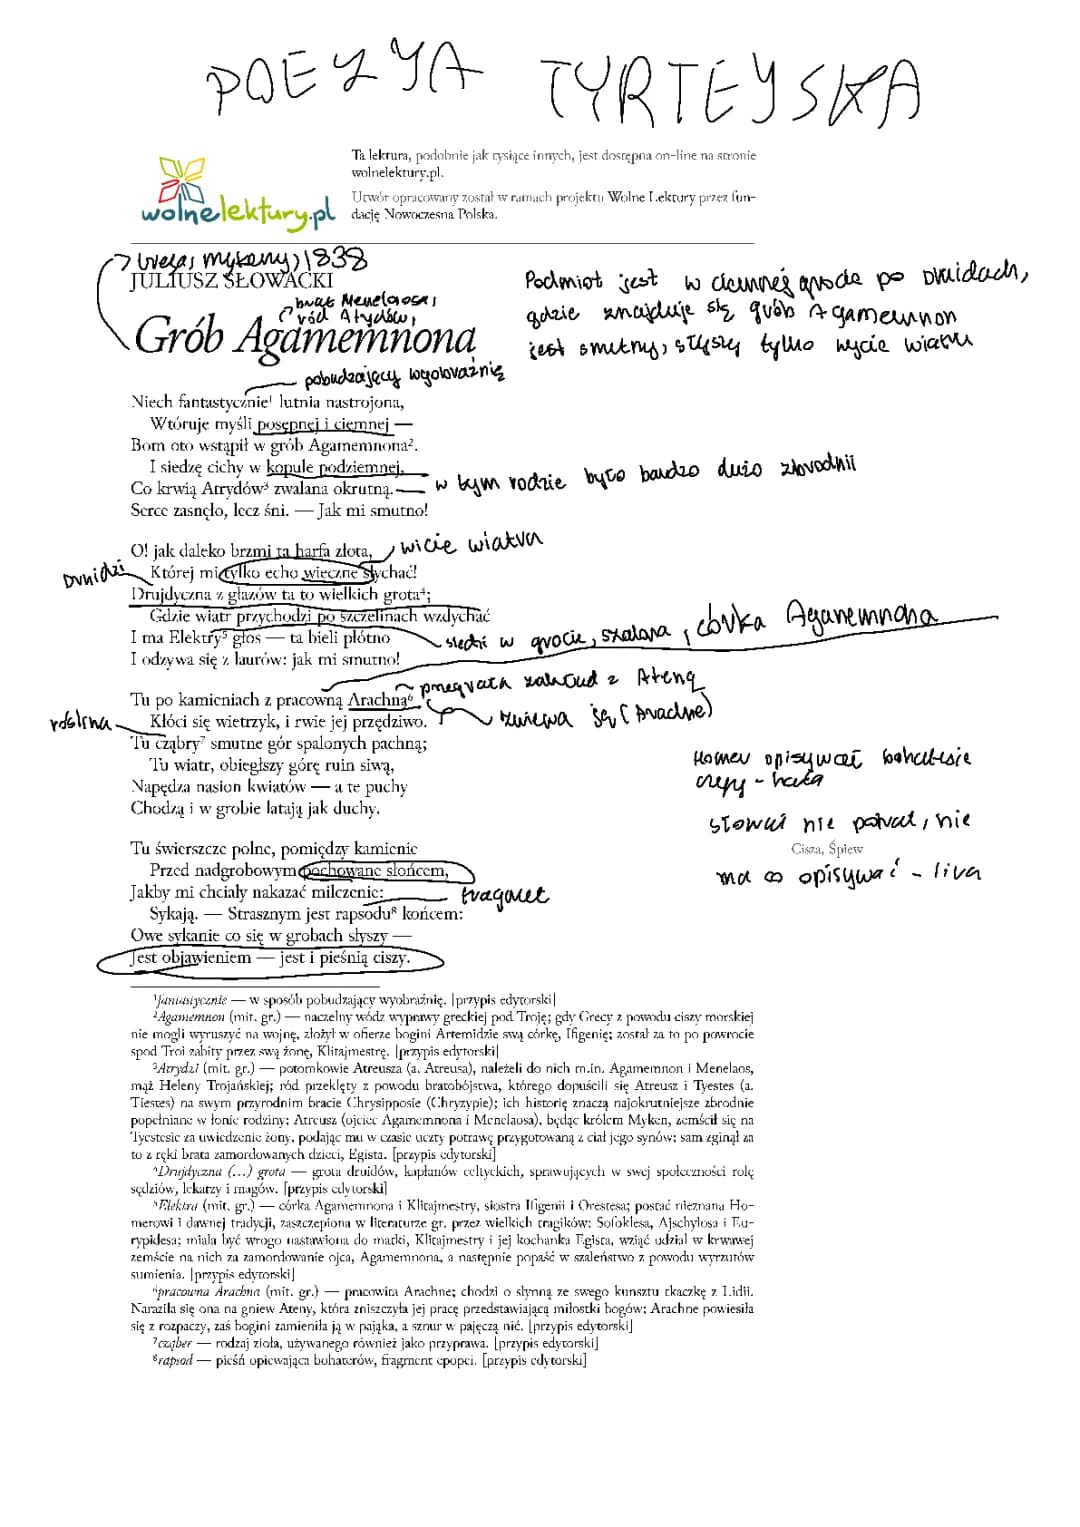 POEZYA TYRTEYSKA
Ta lektura, podobnie jak tysiące innych, jest dostępna on-line na stronie
wolnelektury.pl.
Utwór opracowany został w ramach projektu Wolne Lektury przez fun-
dację Nowoczesna Polska.
wolnelektury.pl
mykeny, 1838
JULIUSZ SŁOWACKI
brat Menelaosa,
ród Atrydów,
Grób Agamemnona
Podmiot jest w ciemnej grocie po Druidach,
gdzie znajduje się grób Agamemnon
jest smutny, słyszy tylko wycie wiatru
pobudzający wyobraźnię
Niech fantastycznie¹ lutnia nastrojona,
Wtóruje myśli posępnej i ciemnej —
Bom oto wstąpił w grób Agamemnona².
I siedzę cichy w kopule podziemnej,
Co krwią Atrydów³ zwalana okrutną.
w tym rodzie było bardzo dużo zbrodnii
Serce zasnęło, lecz śni. — Jak mi smutno!
O! jak daleko brzmi ta harfa złota,
wicie wiatru
Której mi tylko echo wieczne słychać!
Druidzi
Drujdyczna z głazów ta to wielkich grota⁴;
Gdzie wiatr przychodzi po szczelinach wzdychać
I ma Elektry⁵ głos — ta bieli płótno
siedzi w grocie, szalona, córka Agamemnona
I odzywa się z laurów: jak mi smutno!
Tu po kamieniach z pracowną Arachną⁶
przegrała zakład z Ateną
Kłóci się wietrzyk, i rwie jej przędziwo.
roślina
(Arachne)
Tu cząbry⁷ smutne gór spalonych pachną;
Tu wiatr, obiegłszy górę ruin siwą,
Napędza nasion kwiatów — a te puchy
Chodzą i w grobie latają jak duchy.
Homer opisywał
Tu świerszcze polne, pomiędzy kamienie
Cisza, Śpiew
Przed nadgrobowym pochowane słońcem,
ma co opisywać - lira
Jakby mi chciały nakazać milczenie:
fragment
Sykają. — Strasznym jest rapsodu⁸ końcem:
Owe sykanie co się w grobach słyszy —
Jest objawieniem — jest i pieśnią ciszy.
¹fantastycznie — w sposób pobudzający wyobraźnię. [przypis edytorski]
²Agamemnon (mit. gr.) — naczelny wódz wyprawy greckiej pod Troję; gdy Grecy z powodu ciszy morskiej
nie mogli wyruszyć na wojnę, złożył w ofierze bogini Artemidzie swą córkę, Ifigenię; został za to po powrocie
spod Troi zabity przez swą żonę, Klitajmestrę. [przypis edytorski]
³Atrydzi (mit. gr.) — potomkowie Atreusza (a. Atreusa), należeli do nich m.in. Agamemnon i Menelaos,
mąż Heleny Trojańskiej; ród przeklęty z powodu bratobójstwa, którego dopuścili się Atreusz i Tyestes (a.
Tiestes) na swym przyrodnim bracie Chrysipposie (Chryzypie); ich historię znaczą najokrutniejsze zbrodnie
popełniane w łonie rodziny: Atreusz (ojciec Agamemnona i Menelausa), będąc królem Myken, zemścił się na
Tyestesie za uwiedzenie żony, podając mu w czasie uczty potrawę przygotowaną z ciał jego synów; sam zginął za
to z ręki brata zamordowanych dzieci, Egista. [przypis edytorski]
⁴Drujdyczna (...) grota — grota druidów, kapłanów celtyckich, sprawujących w swej społeczności rolę
sędziów, lekarzy i magów. [przypis edytorski]
⁵Elektra (mit. gr.) — córka Agamemnona i Klitajmestry, siostra Ifigenii i Orestesa; postać nieznana Ho-
merowi i dawnej tradycji, zaszczepiona w literaturze gr. przez wielkich tragików: Sofoklesa, Ajschylosa i Eu-
rypidesa; miała być wrogo nastawiona do matki, Klitajmestry i jej kochanka Egista, wziąć udział w krwawej
zemście na nich za zamordowanie ojca, Agamemnona, a następnie popaść w szaleństwo z powodu wyrzutów
sumienia. [przypis edytorski]
⁶pracowna Arachna (mit. gr.) — pracowita Arachne; chodzi o słynną ze swego kunsztu tkaczkę z Lidii.
Naraziła się ona na gniew Ateny, która zniszczyła jej pracę przedstawiającą miłostki bogów; Arachne powiesiła
się z rozpaczy, zaś bogini zamieniła ją w pająka, a sznur w pajęczą nić. [przypis edytorski]
⁷cząber — rodzaj zioła, używanego również jako przyprawa. [przypis edytorski]
⁸rapsod — pieśń opiewająca bohaterów, fragment epopei. [przypis edytorski]